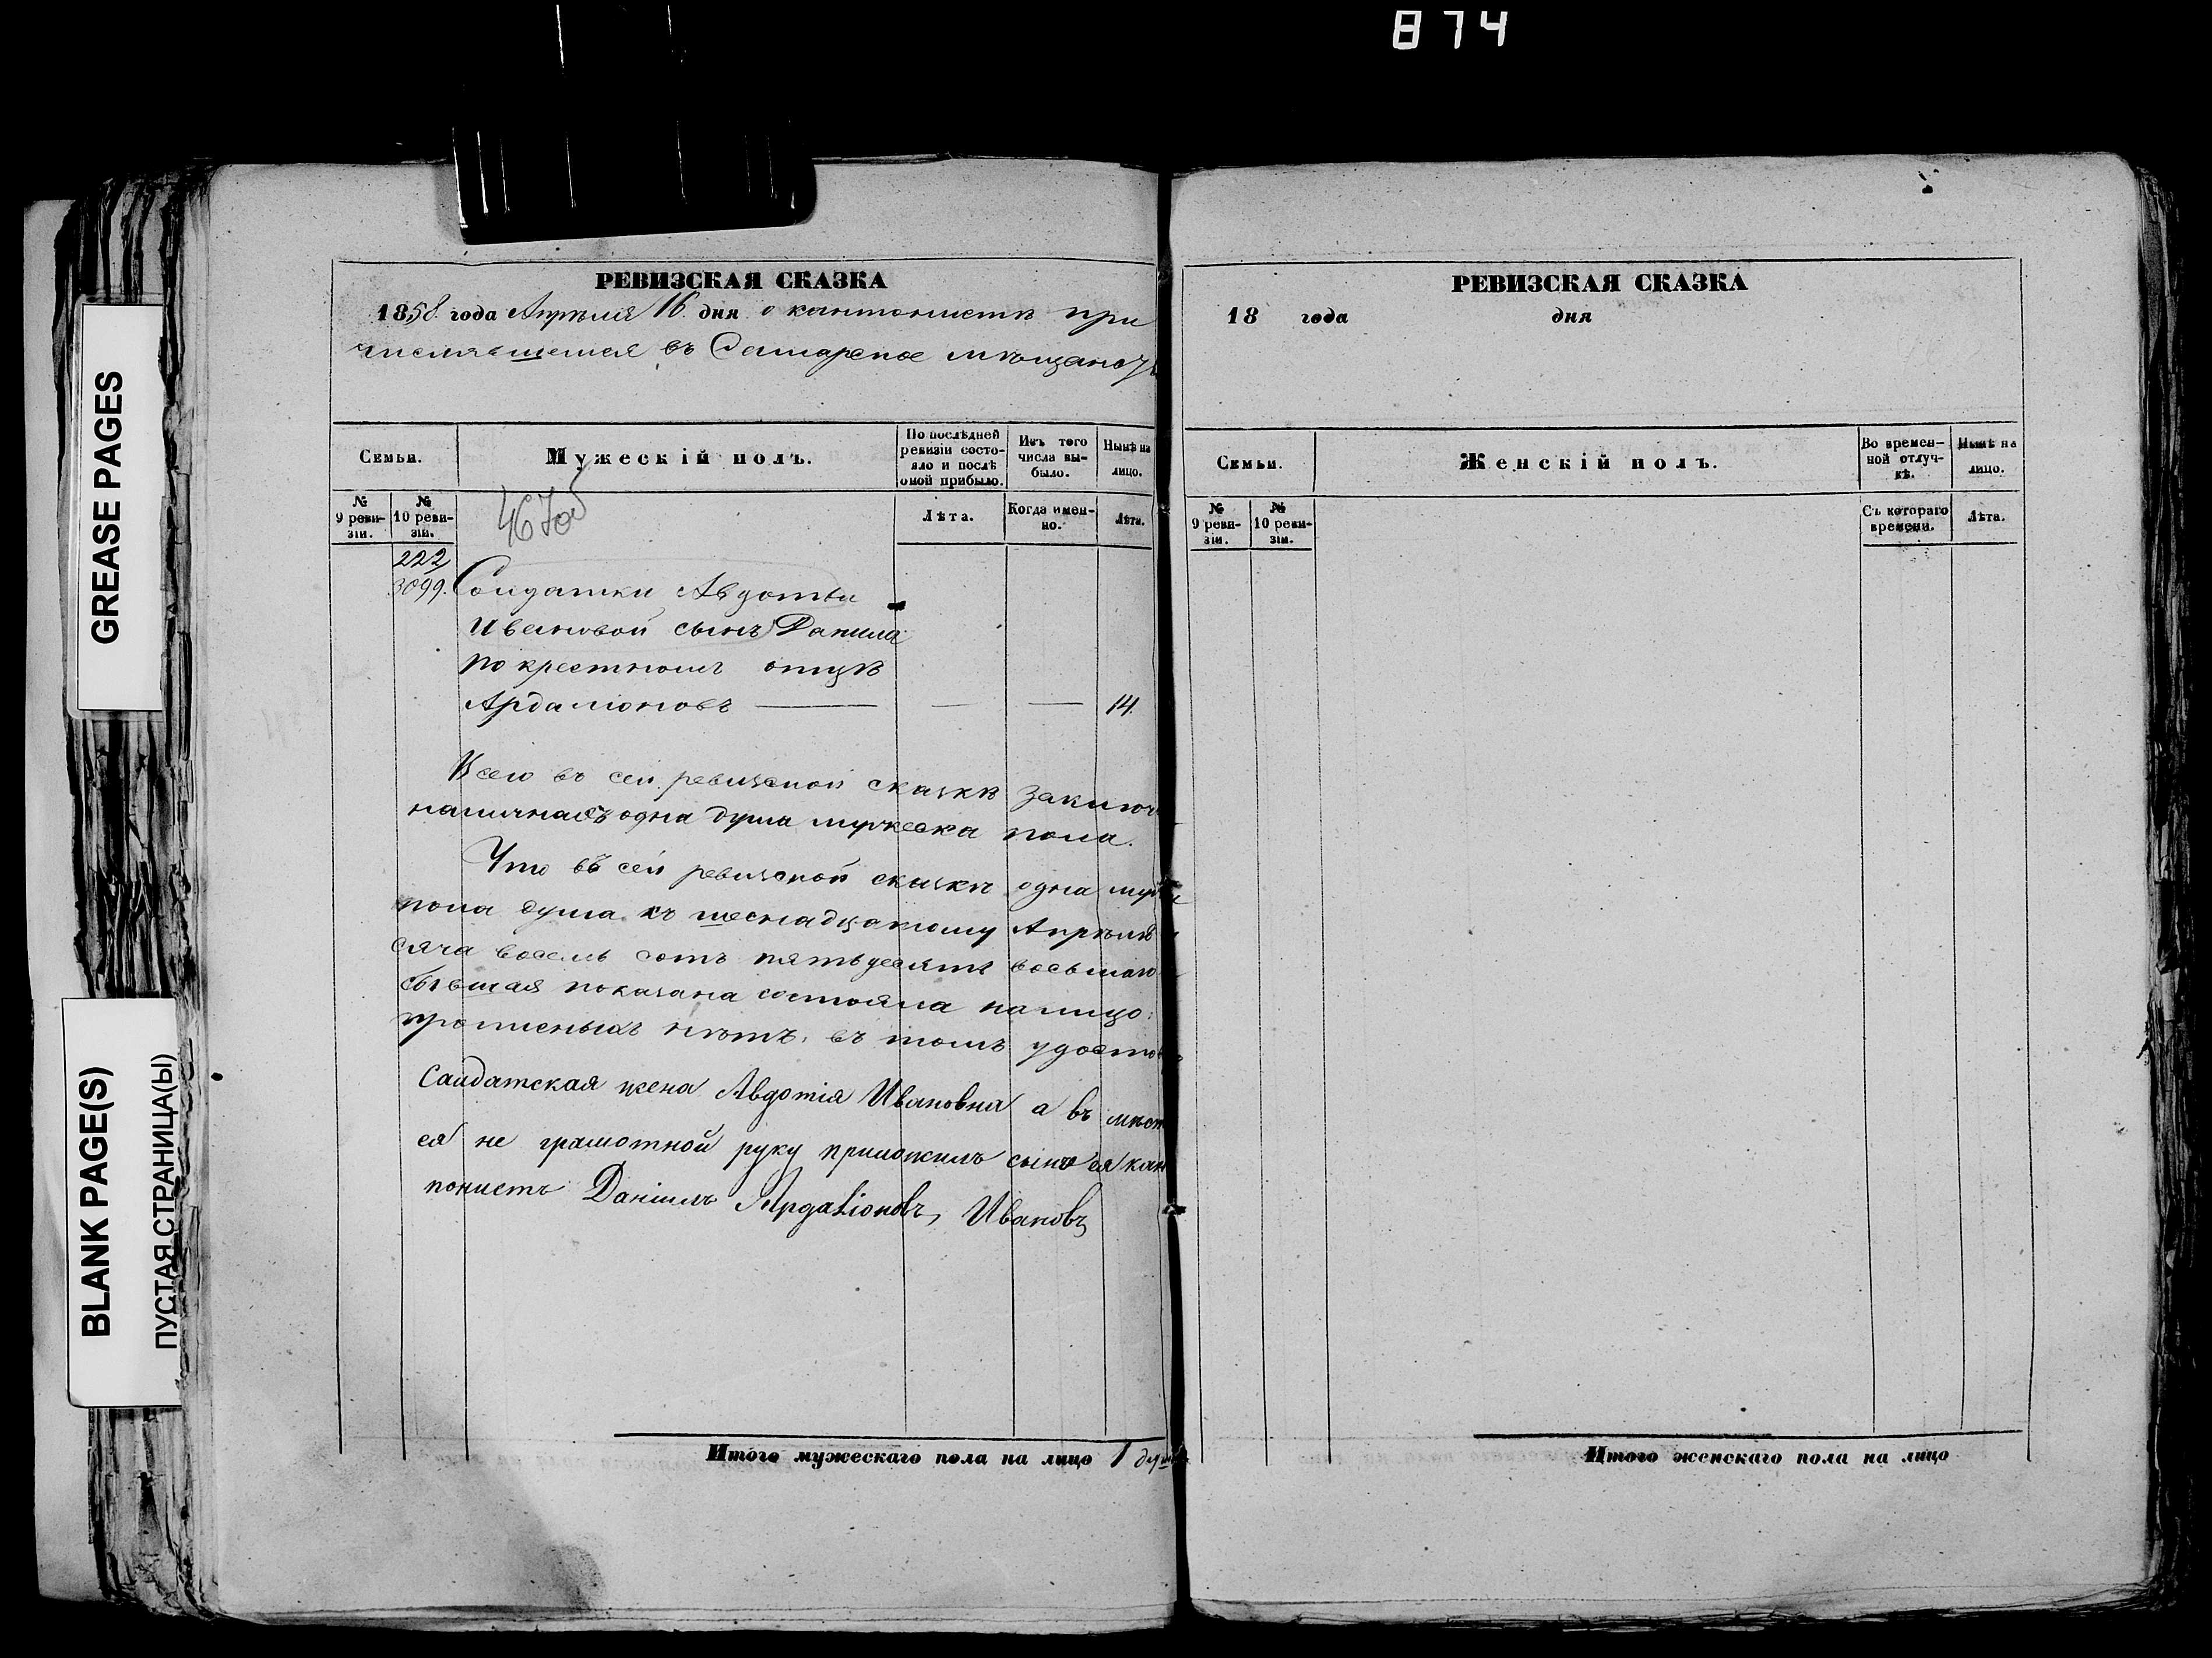 874
GREASE PAGES
BLANK PAGE(S)
ПУСТАЯ СТРАНИЦА(Ы)
РЕВИЗСКАЯ СКАЗКА
1858. года Апрѣля 16. дня о кантонистѣ при
числявшемся въ Самарское мѣщанст
Семьи.
Мужескій полъ.
По послѣдней ревизіи состо-
яло и послѣ
оной прибыло.
Изъ того
числа вы-
было.
Нынѣ на
лицо.
№
9 реви-
зіи.
№
10 реви-
зіи.
Лѣта.
Когда имен-
но.
Лѣта.
222
3099. Солдатки Авдотьи
Ивановой сынъ Данила
по крестномъ отцѣ
Ардалионовъ — — — 14.
Всего въ сей ревизской сказкѣ заключ
наличнаѣ одна душа мужеска пола.
Что въ сей ревизской сказкѣ одна муж
пола душа къ шеснадцатому Апрѣля
сяча восемь сотъ пятьдесятъ восьмаго
бывшая показана состояла налицо:
прописныхъ нѣтъ. въ томъ удостов
Салдатская жена Авдотія Ивановна а въ мѣст
ея не грамотной руку приложилъ сынъ ея кан
тонистъ Даніилъ Ардаліоновъ, Ивановъ
Итого мужескаго пола на лицо 1 душа
РЕВИЗСКАЯ СКАЗКА
18 года дня
Семьи.
Женскій полъ.
Во времен-
ной отлуч-
кѣ.
Нынѣ на
лицо.
№
9 реви-
зіи.
№
10 реви-
зіи.
Съ котораго
времени.
Лѣта.
Итого женскаго пола на лицо